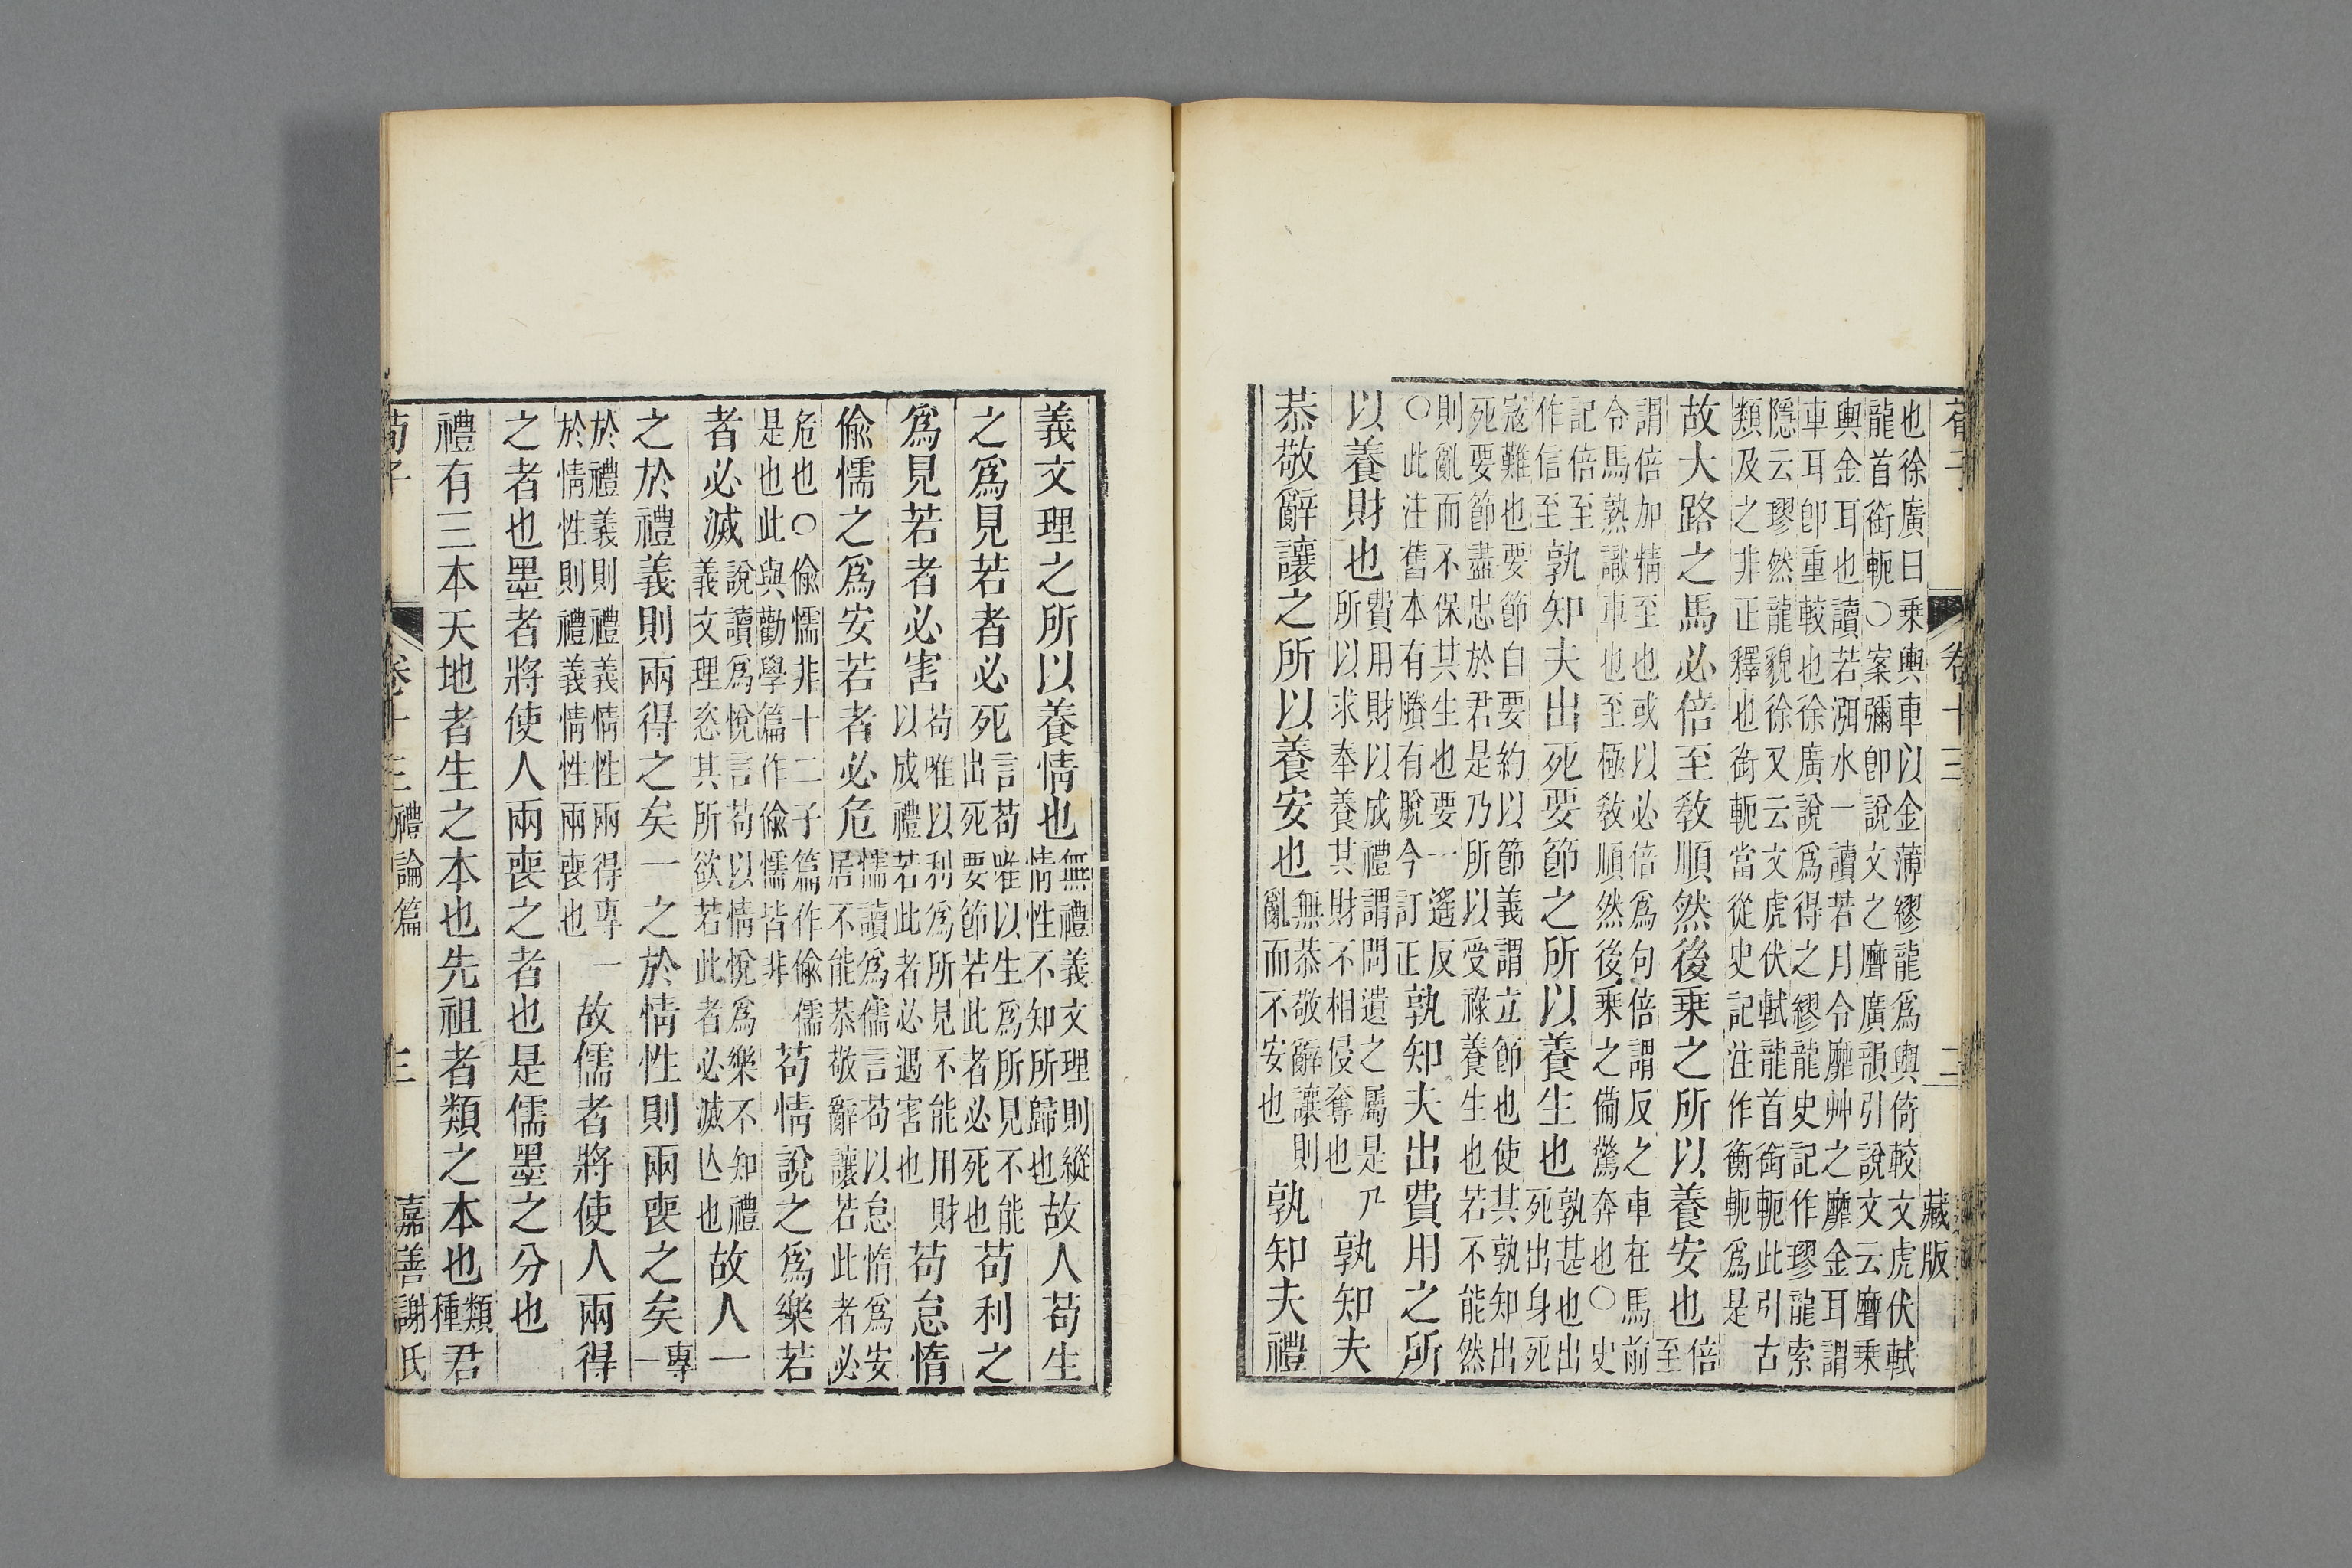 荀子 卷十三 二 藏版
也徐廣曰乘輿車以金薄繆龍爲輿倚較文虎伏軾
龍首銜軛○案彌卽說文之𪎮廣韻引說文云𪎮乘
輿金耳也讀若渳水一讀若月令靡艸之靡金耳謂
車耳卽重較也徐廣說爲得之繆龍史記作璆龍索
隱云璆然龍貌徐又云文虎伏軾龍首銜軛此引古
類及之非正釋也銜軛當從史記注作衡軛爲是
故大路之馬必倍至敎順然後乘之所以養安也倍至
謂倍加精至也或以必倍爲句倍謂反之車在馬前
令馬熟識車也至極敎順然後乘之備驚奔也○史
記倍至作信至孰知夫出死要節之所以養生也孰甚也出死出身死
寇難也要節自要約以節義謂立節也使其孰知出
死要節盡忠於君是乃所以受祿養生也若不能然
則亂而不保其生也要一遙反○此注舊本有賸有脫今訂正孰知夫出費用之所
以養財也費用財以成禮謂問遺之屬是乃所以求奉養其財不相侵奪也孰知夫
恭敬辭讓之所以養安也無恭敬辭讓則亂而不安也孰知夫禮
義文理之所以養情也無禮義文理則縱情性不知所歸也故人苟生
之爲見若者必死言苟唯以生爲所見不能出死要節若此者必死也苟利之
爲見若者必害苟唯以利爲所見不能用財以成禮若此者必遇害也苟怠惰
偸懦之爲安若者必危懦讀爲儒言苟以怠惰爲安居不能恭敬辭讓若此者必
危也○偸懦非十二子篇作偸儒是也此與勸學篇作偸懦皆非苟情說之爲樂若
者必滅說讀爲悅言苟以情悅爲樂不知禮義文理恣其所欲若此者必滅亾也故人一
之於禮義則兩得之矣一之於情性則兩喪之矣專一
於禮義則禮義情性兩得專一於情性則禮義情性兩喪也故儒者將使人兩得
之者也墨者將使人兩喪之者也是儒墨之分也
禮有三本天地者生之本也先祖者類之本也類種君
荀子 卷十三 禮論篇 三 嘉善謝氏